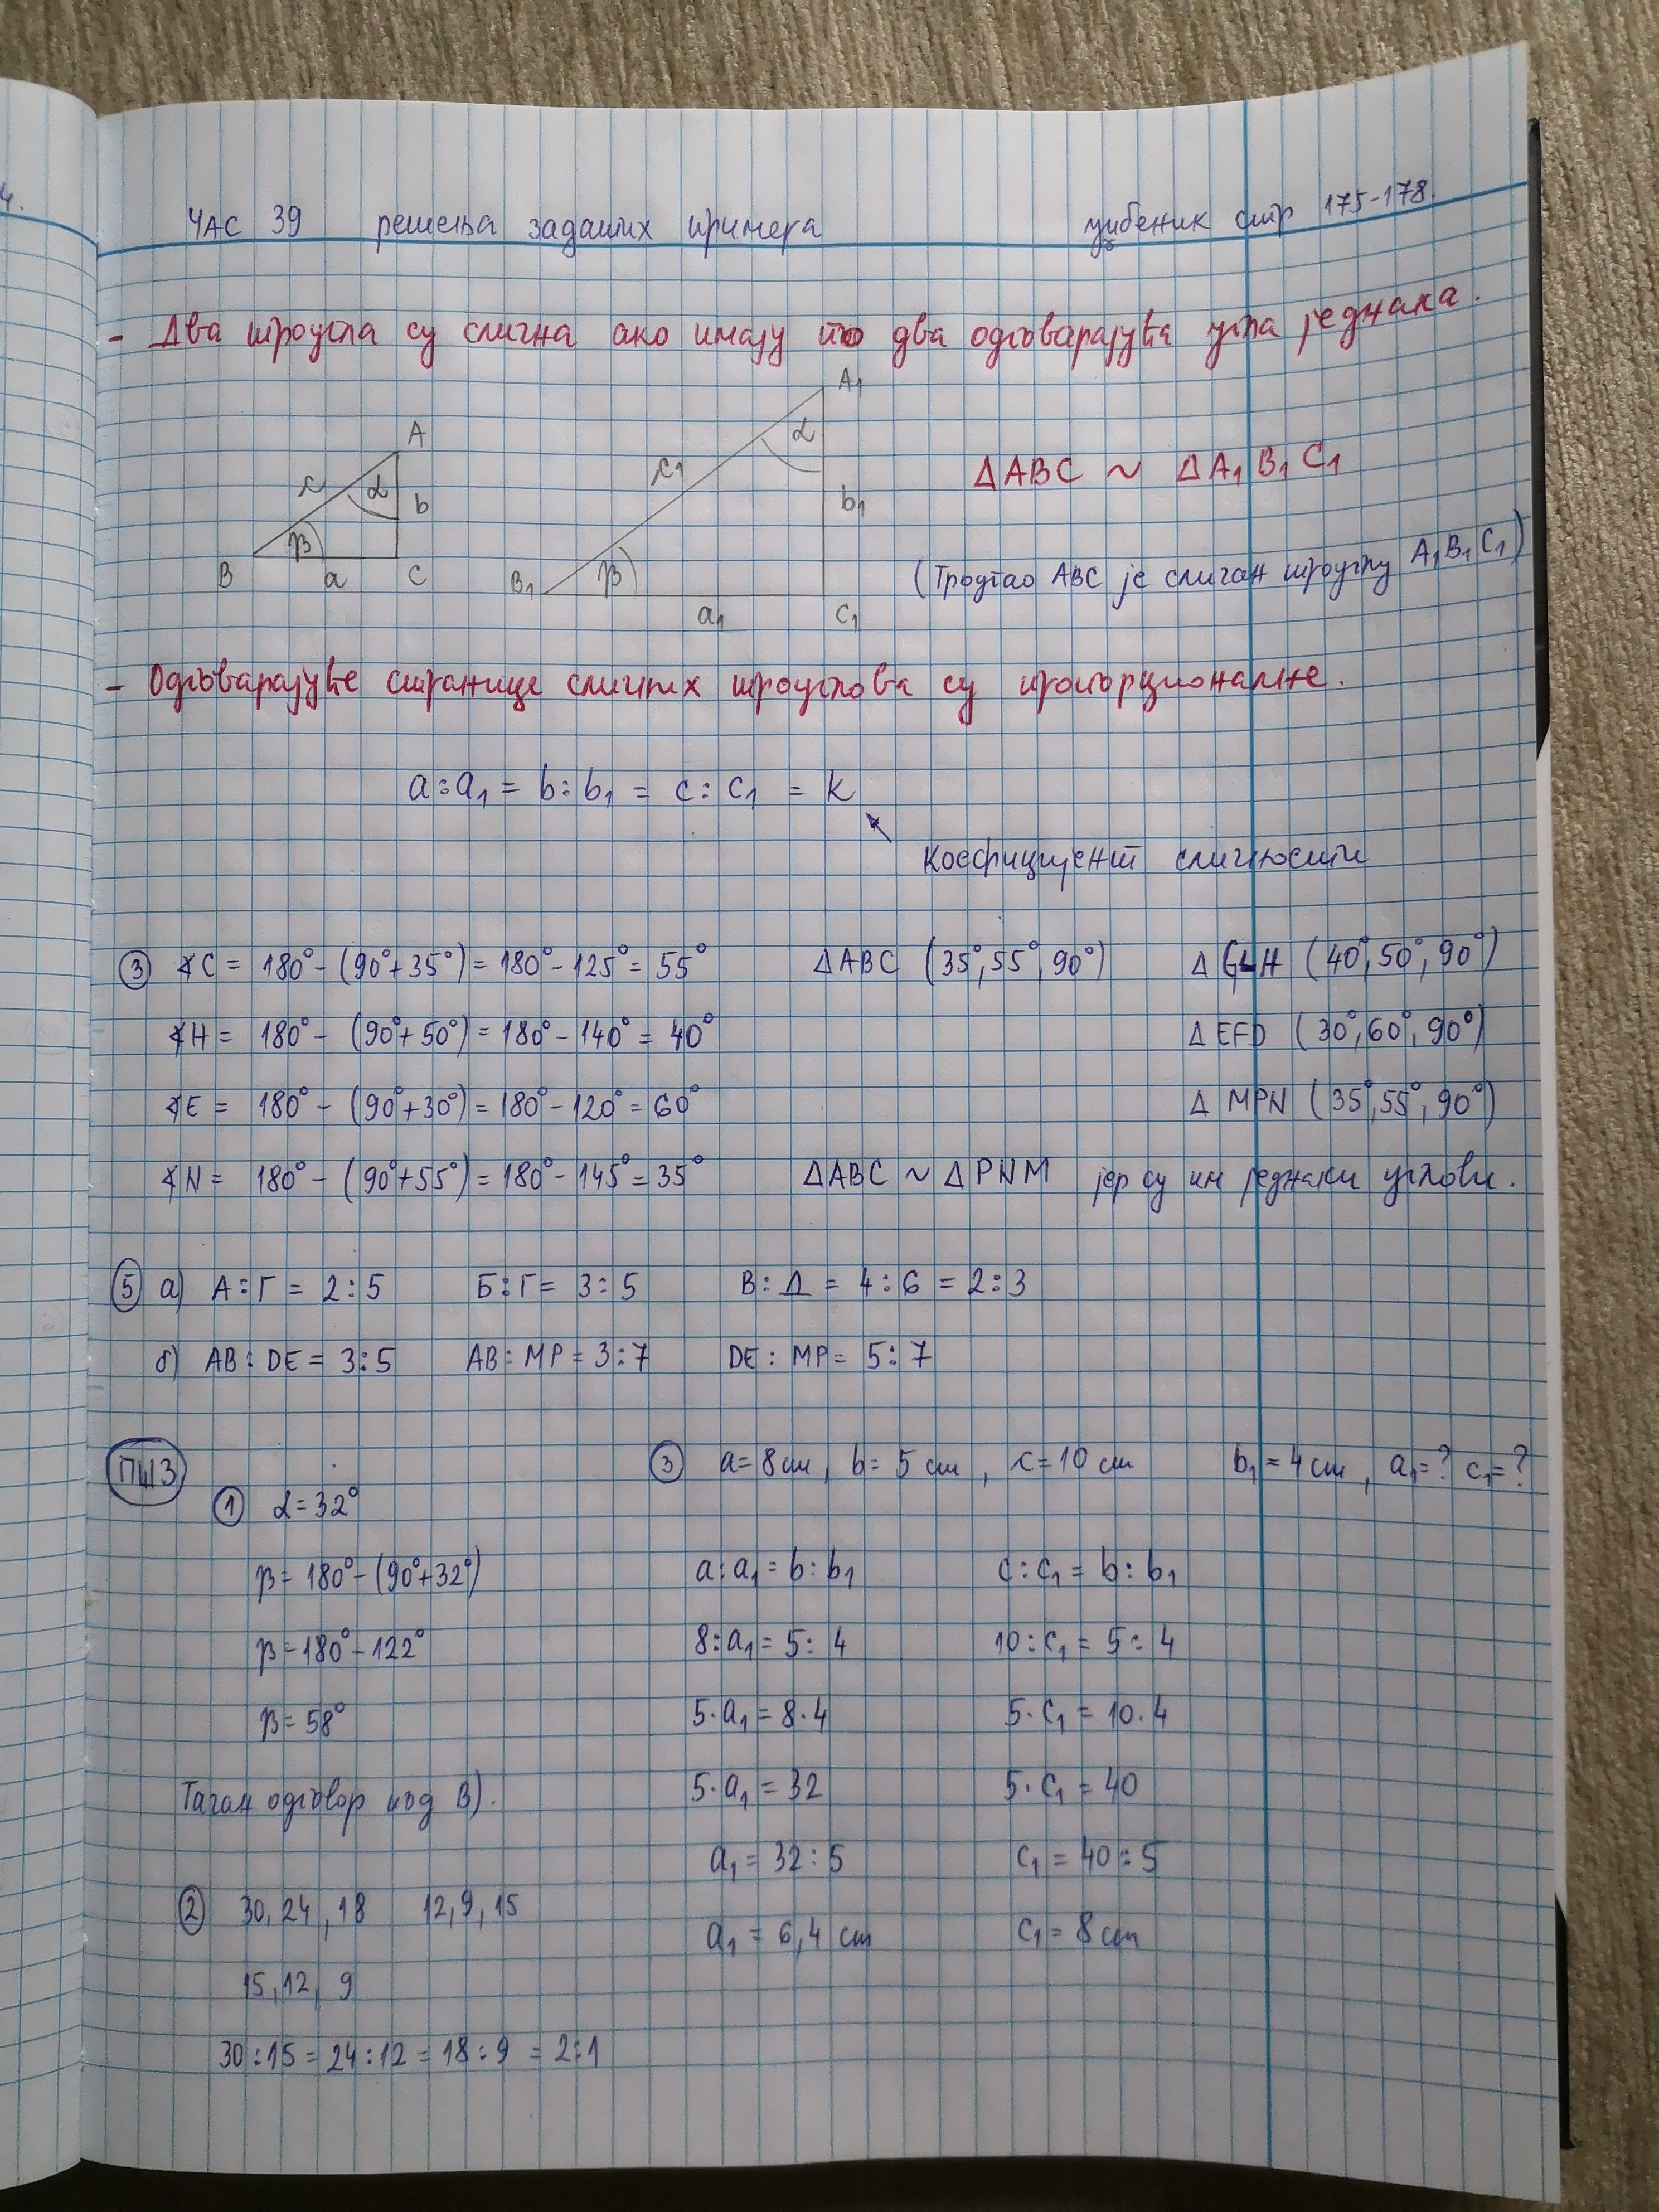 4.
ЧАС 39 решења задатих примера уџбеник стр 175-178.
- Два троугла су слична ако имају по два одговарајућа угла једнака.
A c α b β B a C
A1 c1 α b1 β B1 a1 C1
ΔABC ~ ΔA1B1C1
(Троугао ABC је сличан троуглу A1B1C1)
- Одговарајуће странице сличних троуглова су пропорционалне.
a:a1 = b:b1 = c:c1 = k
Коефицијент сличности
③ ∢C = 180°-(90°+35°)=180°-125°=55° ΔABC (35°,55°,90°) ΔGLH (40°,50°,90°)
∢H = 180°-(90°+50°)=180°-140°=40° ΔEFD (30°,60°,90°)
∢E = 180°-(90°+30°)=180°-120°=60° Δ MPN (35°,55°,90°)
∢N = 180°-(90°+55°)=180°-145°=35° ΔABC ~ ΔPNM јер су им једнаки углови.
⑤ а) А:Г = 2:5 Б:Г = 3:5 В:Д = 4:6 = 2:3
б) AB:DE = 3:5 AB:MP = 3:7 DE:MP = 5:7
ПШЗ
① α=32°
β=180°-(90°+32°)
β=180°-122°
β=58°
Тачан одговор под В).
② 30,24,18 12,9,15
15,12,9
30:15=24:12=18:9=2:1
③ a=8cm, b=5cm, c=10cm b1=4cm, a1=? c1=?
a:a1=b:b1 c:c1=b:b1
8:a1=5:4 10:c1=5:4
5·a1=8·4 5·c1=10·4
5·a1=32 5·c1=40
a1=32:5 c1=40:5
a1=6,4cm c1=8cm